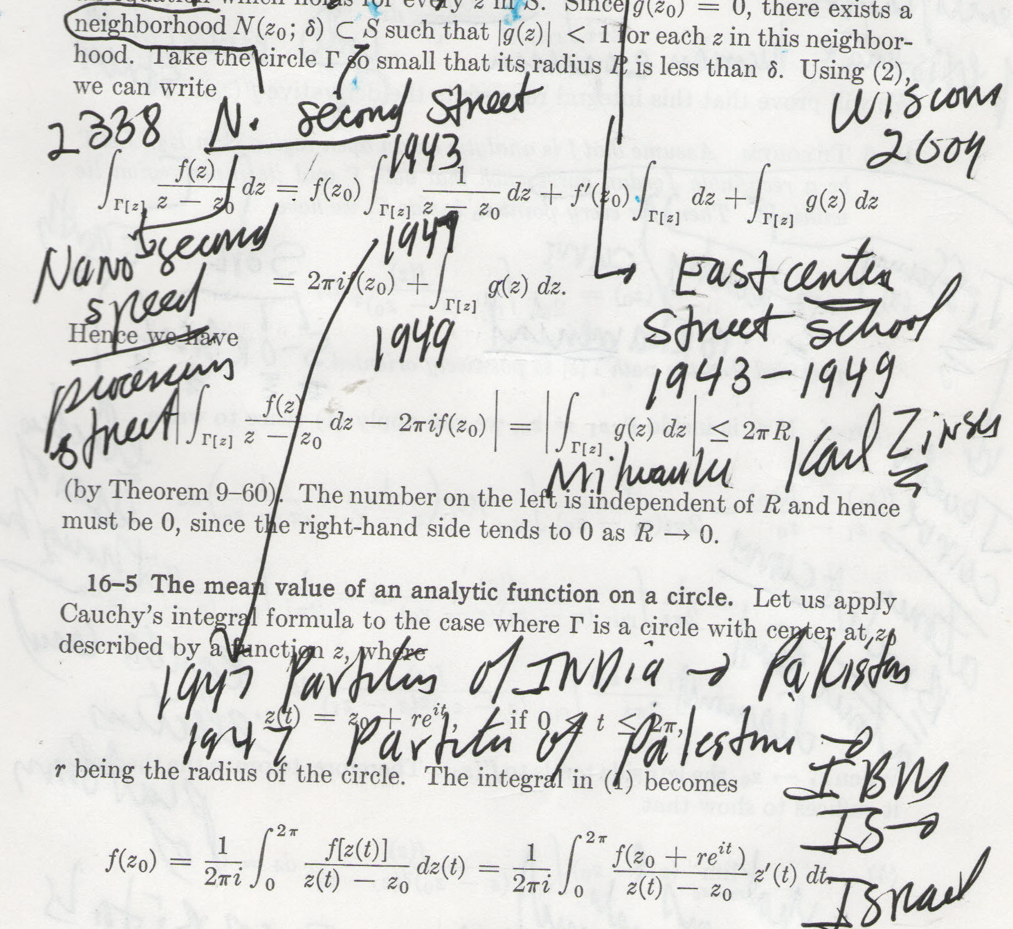 an equation which holds for every z in S. Since g(z₀) = 0, there exists a
neighborhood N(z₀; δ) ⊂ S such that |g(z)| < 1 for each z in this neighbor-
hood. Take the circle Γ so small that its radius R is less than δ. Using (2),
we can write
2338 N. second street
Wiscons
2009
1943
∫_Γ[z] f(z)/(z − z₀) dz = f(z₀) ∫_Γ[z] 1/(z − z₀) dz + f′(z₀) ∫_Γ[z] dz + ∫_Γ[z] g(z) dz
Nano second
speed
1947
= 2πif(z₀) + ∫_Γ[z] g(z) dz.
East center
street school
1943-1949
Hence we have
1949
street
|∫_Γ[z] f(z)/(z − z₀) dz − 2πif(z₀)| = |∫_Γ[z] g(z) dz| ≤ 2πR,
Karl Zinser
(by Theorem 9–60). The number on the left is independent of R and hence
must be 0, since the right-hand side tends to 0 as R → 0.
16–5 The mean value of an analytic function on a circle. Let us apply
Cauchy's integral formula to the case where Γ is a circle with center at z₀
described by a function z, where
1947 Partition of INDia → Pakistan
z(t) = z₀ + reⁱᵗ, if 0 ≤ t ≤ 2π,
1947 Partition of Palestine →
r being the radius of the circle. The integral in (1) becomes
IBM
IS →
f(z₀) = 1/2πi ∫₀^2π f[z(t)]/(z(t) − z₀) dz(t) = 1/2πi ∫₀^2π f(z₀ + reⁱᵗ)/(z(t) − z₀) z′(t) dt.
Israel